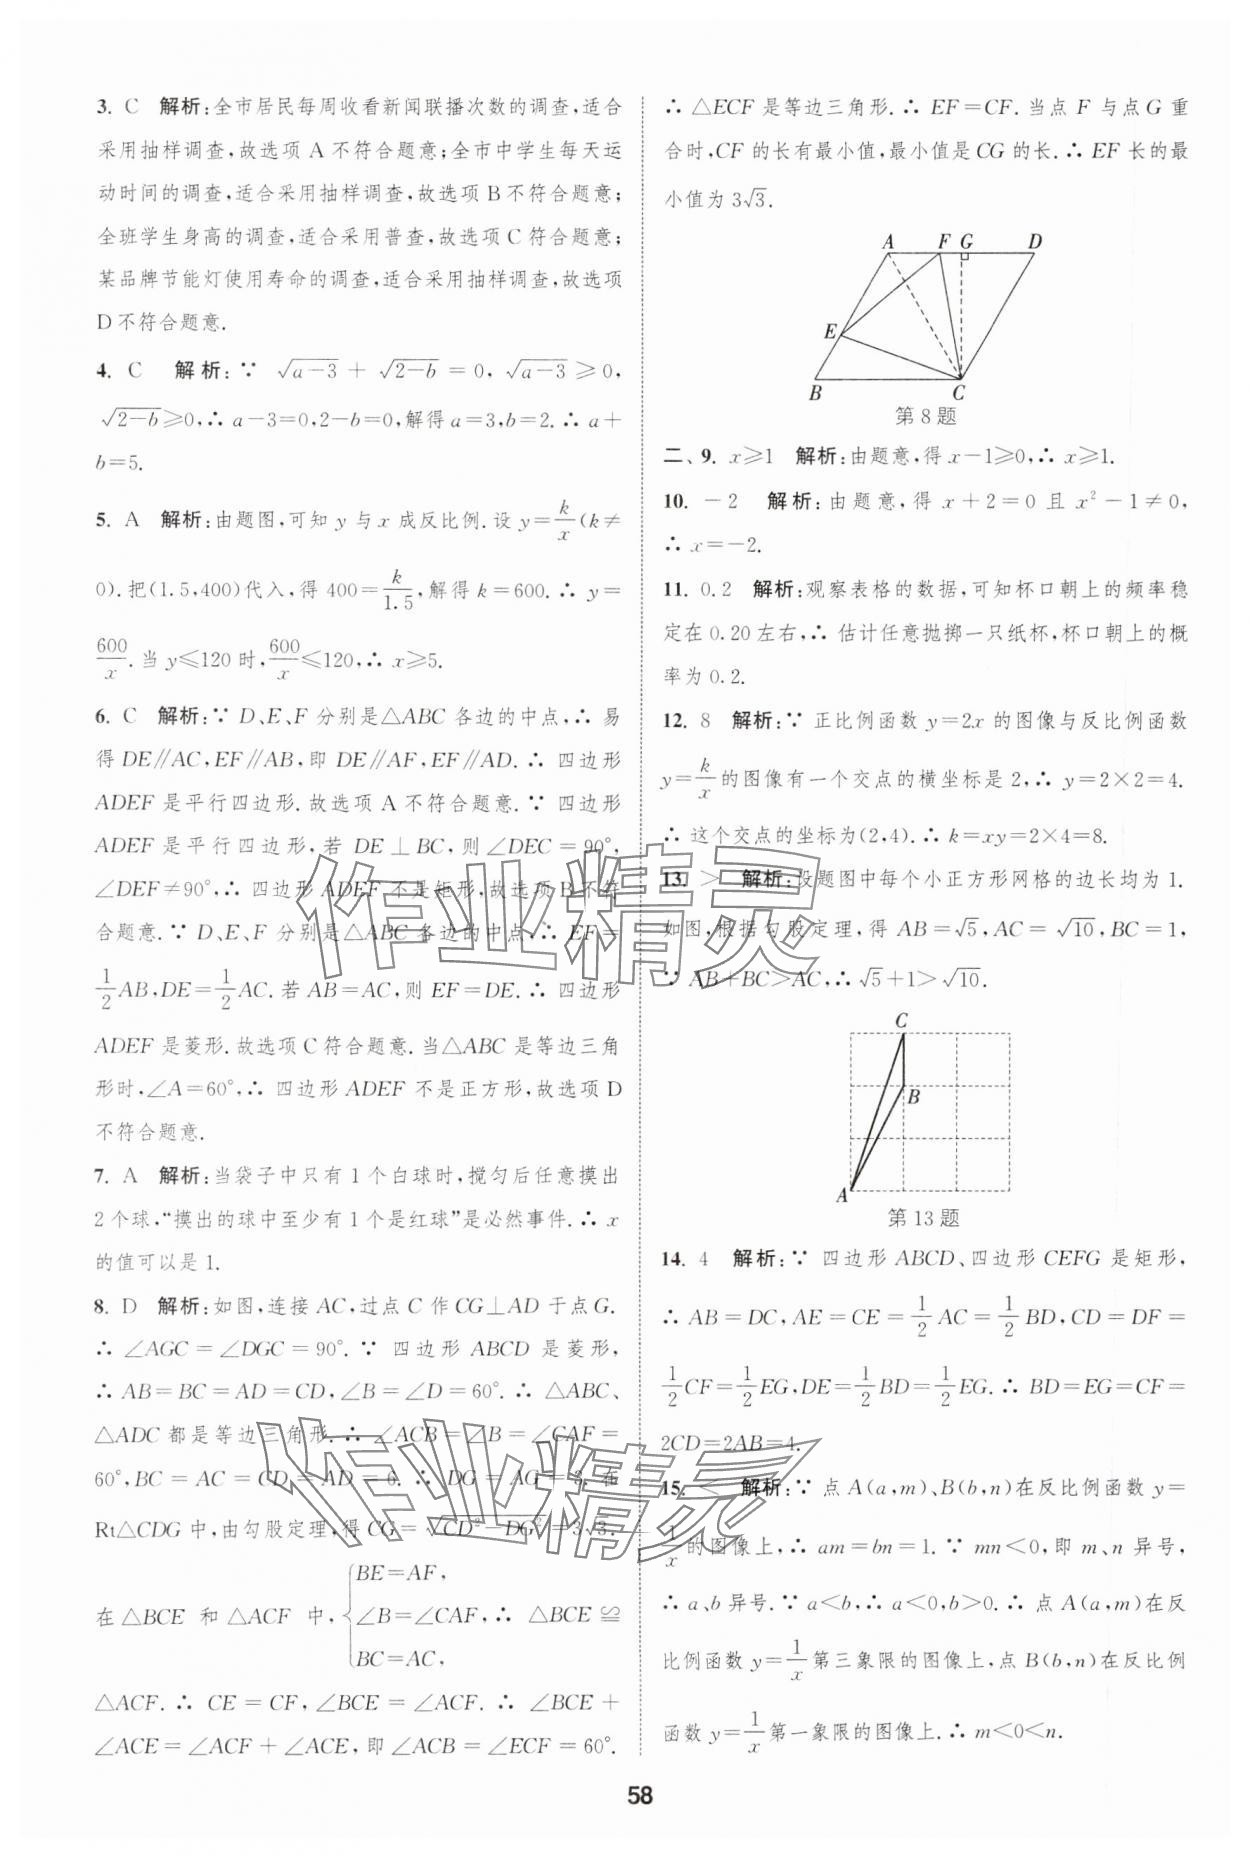 3. C 解析:全市居民每周收看新闻联播次数的调查,适合
采用抽样调查,故选项 A 不符合题意;全市中学生每天运
动时间的调查,适合采用抽样调查,故选项 B 不符合题意;
全班学生身高的调查,适合采用普查,故选项 C 符合题意;
某品牌节能灯使用寿命的调查,适合采用抽样调查,故选项
D 不符合题意.
4. C 解析:∵ √(a-3) + √(2-b) = 0, √(a-3) ≥ 0,
√(2-b)≥0,∴ a-3=0,2-b=0,解得 a=3,b=2.∴ a+
b=5.
5. A 解析:由题图,可知 y 与 x 成反比例.设 y=k/x(k≠
0).把(1.5,400)代入,得 400=k/1.5,解得 k=600.∴ y=
600/x.当 y≤120 时,600/x≤120,∴ x≥5.
6. C 解析:∵ D、E、F 分别是△ABC 各边的中点,∴ 易
得 DE∥AC,EF∥AB,即 DE∥AF,EF∥AD.∴ 四边形
ADEF 是平行四边形.故选项 A 不符合题意.∵ 四边形
ADEF 是平行四边形,若 DE⊥BC,则∠DEC=90°,
∠DEF≠90°,∴ 四边形 ADEF 不是矩形,故选项 B 不符
合题意.∵ D、E、F 分别是△ABC 各边的中点,∴ EF=
1/2AB,DE=1/2AC.若 AB=AC,则 EF=DE.∴ 四边形
ADEF 是菱形.故选项 C 符合题意.当△ABC 是等边三角
形时,∠A=60°,∴ 四边形 ADEF 不是正方形,故选项 D
不符合题意.
7. A 解析:当袋子中只有 1 个白球时,搅匀后任意摸出
2 个球,“摸出的球中至少有 1 个是红球”是必然事件.∴ x
的值可以是 1.
8. D 解析:如图,连接 AC,过点 C 作 CG⊥AD 于点 G.
∴ ∠AGC=∠DGC=90°.∵ 四边形 ABCD 是菱形,
∴ AB=BC=AD=CD,∠B=∠D=60°.∴ △ABC、
△ADC 都是等边三角形.∴ ∠ACB=∠B=∠CAF=
60°,BC=AC=CD=AD=6.∴ DG=AG=3.在
Rt△CDG 中,由勾股定理,得 CG=√(CD²-DG²)=3√3.
在△BCE 和△ACF 中,{BE=AF, ∠B=∠CAF, BC=AC,∴ △BCE≌
△ACF.∴ CE=CF,∠BCE=∠ACF.∴ ∠BCE+
∠ACE=∠ACF+∠ACE,即∠ACB=∠ECF=60°.
∴ △ECF 是等边三角形.∴ EF=CF.当点 F 与点 G 重
合时,CF 的长有最小值,最小值是 CG 的长.∴ EF 长的最
小值为 3√3.
A F G D
E
B C
第 8 题
二、9. x≥1 解析:由题意,得 x-1≥0,∴ x≥1.
10. -2 解析:由题意,得 x+2=0 且 x²-1≠0,
∴ x=-2.
11. 0.2 解析:观察表格的数据,可知杯口朝上的频率稳
定在 0.20 左右,∴ 估计任意抛掷一只纸杯,杯口朝上的概
率为 0.2.
12. 8 解析:∵ 正比例函数 y=2x 的图像与反比例函数
y=k/x的图像有一个交点的横坐标是 2,∴ y=2×2=4.
∴ 这个交点的坐标为(2,4).∴ k=xy=2×4=8.
13. > 解析:设题图中每个小正方形网格的边长均为 1.
如图,根据勾股定理,得 AB=√5,AC=√10,BC=1,
∵ AB+BC>AC,∴ √5+1>√10.
C
B
A
第 13 题
14. 4 解析:∵ 四边形 ABCD、四边形 CEFG 是矩形,
∴ AB=DC,AE=CE=1/2AC=1/2BD,CD=DF=
1/2CF=1/2EG,DE=1/2BD=1/2EG.∴ BD=EG=CF=
2CD=2AB=4.
15. < 解析:∵ 点 A(a,m)、B(b,n)在反比例函数 y=
1/x的图像上,∴ am=bn=1.∵ mn<0,即 m、n 异号,
∴ a、b 异号.∵ a<b,∴ a<0,b>0.∴ 点 A(a,m)在反
比例函数 y=1/x第三象限的图像上,点 B(b,n)在反比例
函数 y=1/x第一象限的图像上.∴ m<0<n.
58
作业精灵
作业精灵